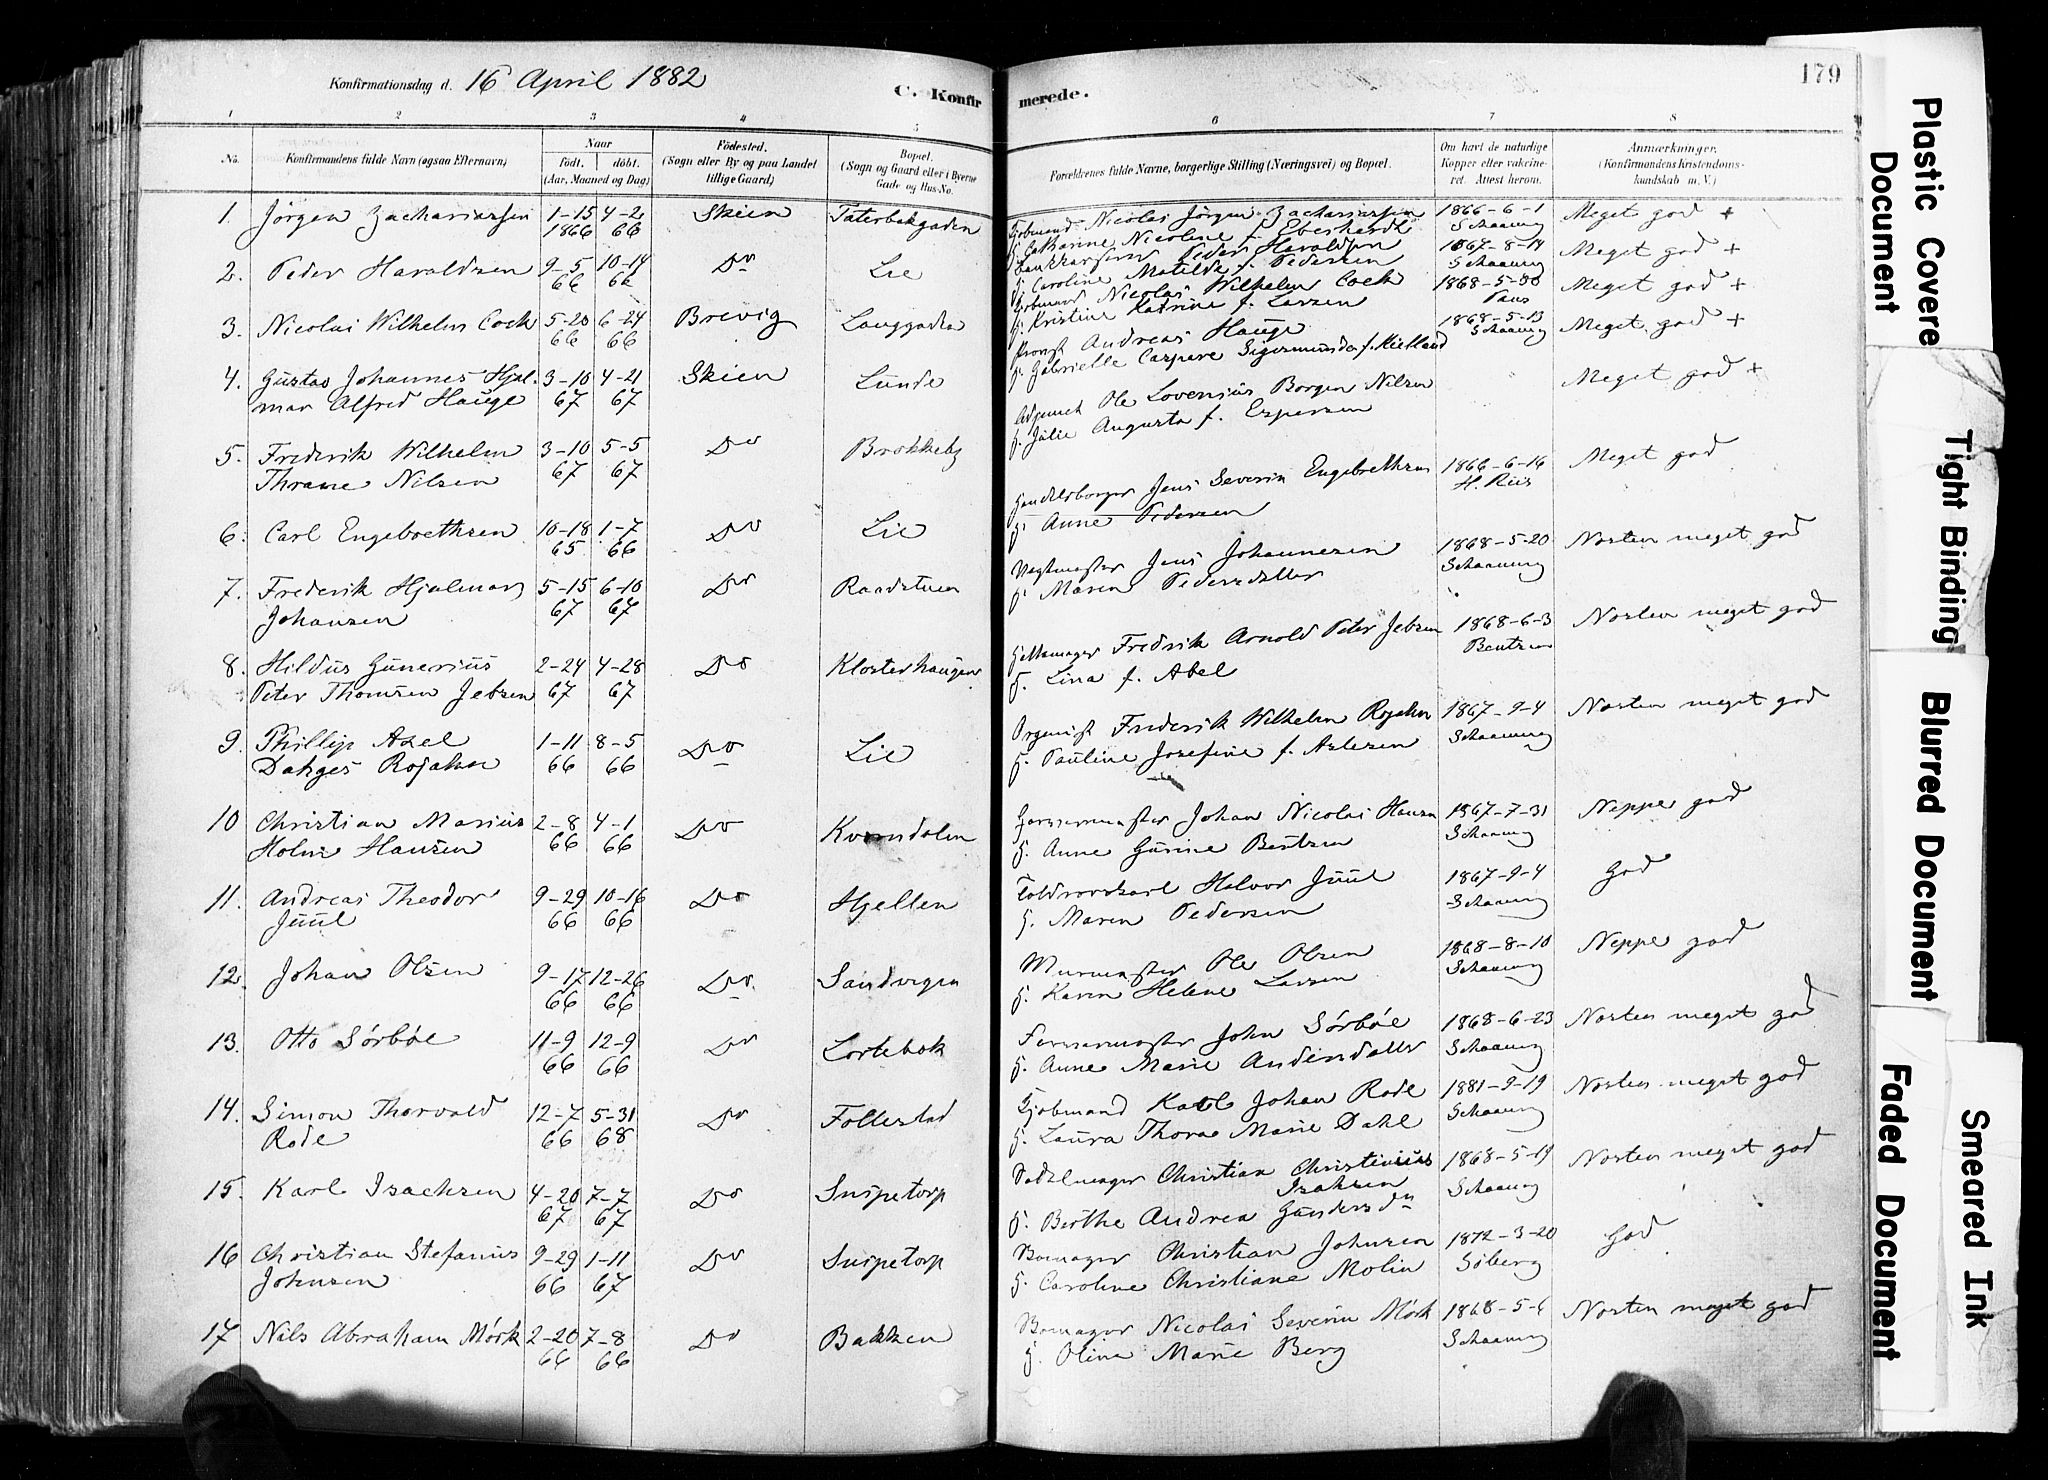 Konfirmationsdag d. 16 April 1882
C. Konfirmerede.
179
1 2 3 4 5 6 7 8
No. Konfirmandens fulde Navn (ogsaa Efternavn) Naar født. døbt. (Aar, Maaned og Dag) Fødested. (Sogn eller By og paa Landet tillige Gaard) Bopæl. (Sogn og Gaard eller i Byerne Gade og Hus-No. Forældrenes fulde Navne, borgerlige Stilling (Næringsvei) og Bopæl. Om havt de naturlige Kopper eller vakcineret. Attest herom. Anmærkninger. (Konfirmandens kristendomskundskab m. V.)
1. Jörgen Zachariassen 1-15 1866 4-2 66 Skien Taterbakgaden Kjøbmand Nicolai Jörgen Zachariassen 1866-6-1 Schaaning Meget god +
g. Catharine Nicoline f. Eberhardt
2. Peder Haraldsen 9-5 66 10-14 66 Do Lie Peder Haraldsen 1867-8-14 Schaaning Meget god +
g. Caroline Matilde f. Pedersen
3. Nicolai Wilhelm Cock 5-20 66 6-24 66 Brevig Langgaden Kjøbmand Nicolai Wilhelm Cock 1868-5-30 Meget god +
g. Kristine Katrine f. Larsen
4. Gustav Johannes Hjal- 3-10 67 4-21 67 Skien Lunde Provst Andreas Hauge 1868-5-13 Schaaning Meget god +
mar Alfred Hauge g. Gabrielle Caspare Sigismunda f. Kielland
5. Frederik Wilhelm 3-10 67 5-5 67 Do Brekkeby Adjunct Ole Lovenius Borgen Nilsen Meget god +
Thrane Nilsen g. Julie Augusta f. Espersen
6. Carl Engebrethsen 10-18 65 1-7 66 Do Lie Handelsborger Jens Severin Engebrethsen 1866-6-16 H. Riis Meget god
g. Anne Pedersen
7. Frederik Hjalmar 5-15 67 6-10 67 Do Raadstuen Vagtmester Jens Johannesen 1868-5-20 Schaaning Næsten meget god
Johansen g. Maren Pedersdatter
8. Hildus Gunerius 2-24 67 4-28 67 Do Klosterhaugen Feltmager Fredrik Arnold Peter Jebsen 1868-6-3 Bentzen Næsten meget god
Peter Thomsen Jebsen g. Lina f. Abel
9. Phillip Axel 1-11 66 8-5 66 Do Lie Organist Frederik Wilhelm Rojahn 1867-9-4 Schaaning Næsten meget god
Rojahn g. Pauline Josefine f. Aslesen
10 Christian Marius 2-8 66 4-1 66 Do Kverndalen Garvermester Johan Nicolai Hansen 1867-7-31 Schaaning Neppe god
Holm Hansen g. Anne Gurine Bentzen
11. Andreas Theodor 9-29 66 10-16 66 Do Hjellen Toldrorskarl Halvor Juul 1867-9-4 Schaaning God
Juul g. Maren Pedersen
12. Johan Olsen 9-17 66 12-26 66 Do Sandvigen Murmester Ole Olsen 1868-8-10 Schaaning Neppe god
g. Karen Helene Larsen
13. Otto Sörböe 11-9 66 12-9 66 Do Lortebak Farvermester John Sörböe 1868-6-23 Schaaning Næsten meget god
g. Anne Marie
14. Simon Thorvald 12-7 66 5-31 68 Do Follestad Kjøbmand Karl Johan Rode 1881-9-19 Schaaning Næsten meget god
Rode g. Laura Thora Marie Dahl
15. Karl Isachsen 4-20 67 7-7 67 Do Snipetorp Sadelmager Christian Christinius Isaksen 1868-5-19 Schaaning Næsten meget god
g. Berthe Andrea Gundersdn
16 Christian Stefanus 9-29 66 1-11 67 Do Snipetorp Christian Johnsen 1872-3-20 Söberg God
Johnsen g. Caroline Christiane Molin
17 Nils Abraham Mörk 2-20 66 7-8 66 Do Bakken Nicolai Severin Mörk 1868-5-6 Schaaning Næsten meget god
g. Oline Marie Berg
Plastic Covere Document
Tight Binding
Blurred Document
Faded Document
Smeared Ink